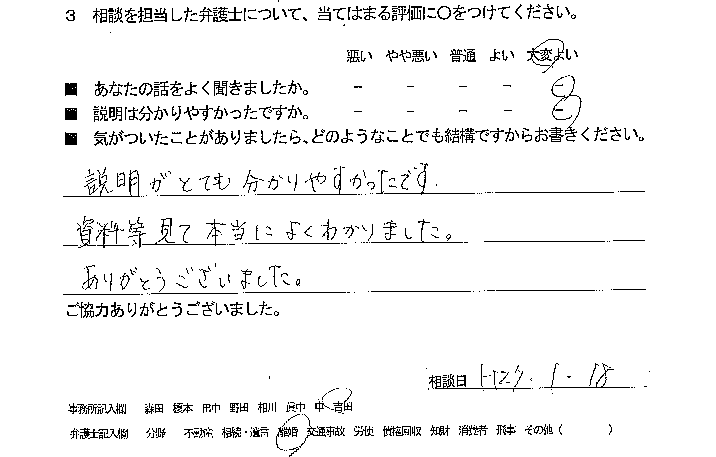 3 相談を担当した弁護士について、当てはまる評価に○をつけてください。
悪い やや悪い 普通 よい 大変よい
■ あなたの話をよく聞きましたか。 － － － － －
■ 説明は分かりやすかったですか。 － － － － －
■ 気がついたことがありましたら、どのようなことでも結構ですからお書きください。
説明がとても分かりやすかったです.
資料等見て本当によくわかりました。
ありがとうございました。
ご協力ありがとうございました。
相談日 H27.1.18
事務所記入欄 森田 榎本 田中 野田 相川 眞中 申 吉田
弁護士記入欄 分野 不動産 相続・遺言 離婚 交通事故 労使 債権回収 知財 消費者 刑事 その他（ ）